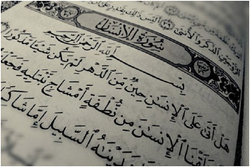 الذَّكَرَ وَالْأُنثَىٰ
سُورَةُ الْإِنسَانِ
بِسْمِ اللَّهِ الرَّحْمَٰنِ الرَّحِيمِ
هَلْ أَتَىٰ عَلَى الْإِنسَٰنِ حِينٌ مِّنَ الدَّهْرِ لَمْ يَكُن شَيْـًٔا
خَلَقْنَا الْإِنسَٰنَ مِن نُّطْفَةٍ أَمْشَاجٍ نَّبْتَلِيهِ
هَدَيْنَٰهُ السَّبِيلَ إِمَّا شَاكِرًا